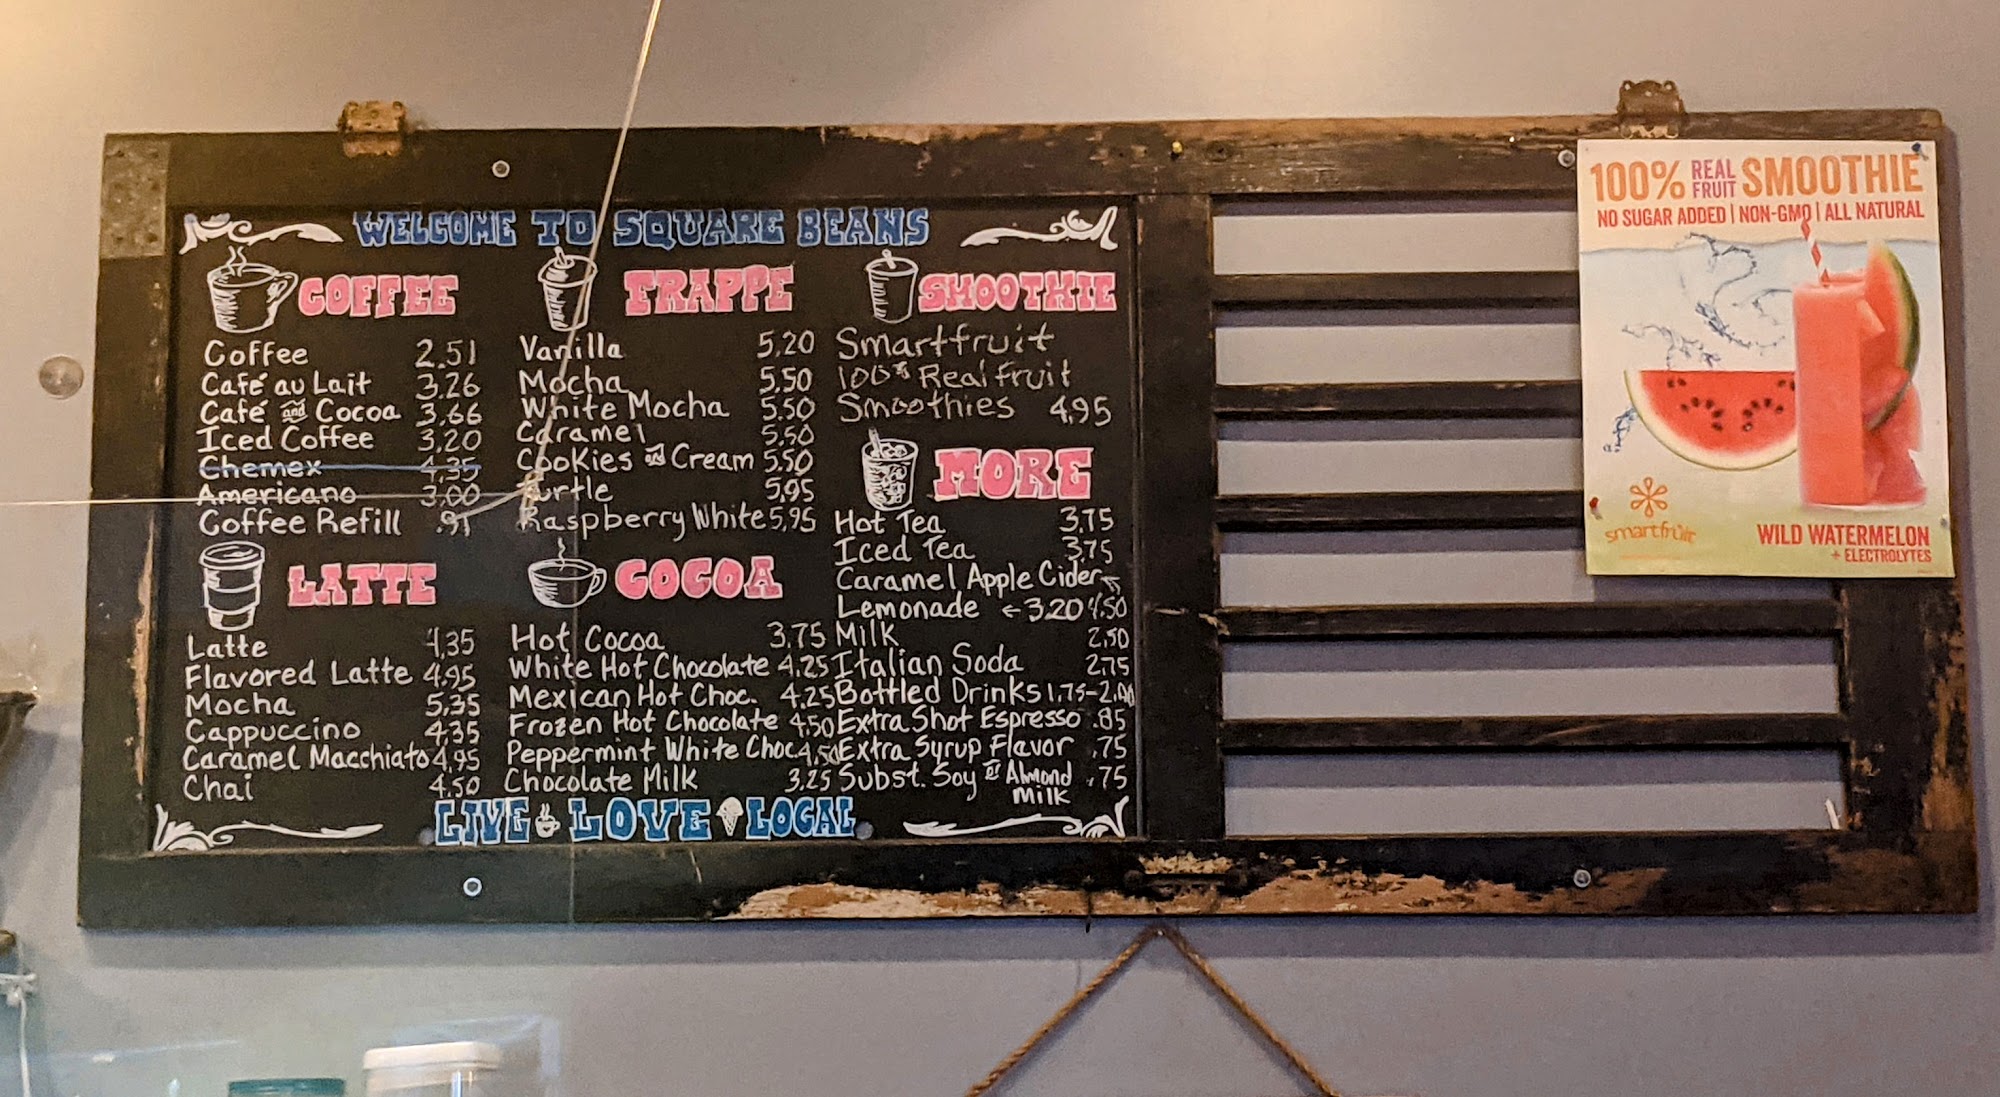 WELCOME TO SQUARE BEANS
COFFEE
Coffee 2.51
Café au Lait 3.26
Café and Cocoa 3.66
Iced Coffee 3.20
Chemex 4.35
Americano 3.00
Coffee Refill .91
LATTE
Latte 4.35
Flavored Latte 4.95
Mocha 5.35
Cappuccino 4.35
Caramel Macchiato 4.95
Chai 4.50
FRAPPE
Vanilla 5.20
Mocha 5.50
White Mocha 5.50
Caramel 5.50
Cookies and Cream 5.50
Turtle 5.95
Raspberry White 5.95
COCOA
Hot Cocoa 3.75
White Hot Chocolate 4.25
Mexican Hot Choc. 4.25
Frozen Hot Chocolate 4.50
Peppermint White Choc 4.50
Chocolate Milk 3.25
SMOOTHIE
Smartfruit
100% Real Fruit
Smoothies 4.95
MORE
Hot Tea 3.75
Iced Tea 3.75
Caramel Apple Cider
Lemonade ← 3.20 4.50
Milk 2.50
Italian Soda 2.75
Bottled Drinks 1.75-2.00
Extra Shot Espresso .85
Extra Syrup Flavor .75
Subst. Soy or Almond .75
Milk
LIVE LOVE LOCAL
100% REAL FRUIT SMOOTHIE
NO SUGAR ADDED | NON-GMO | ALL NATURAL
smartfruit
WILD WATERMELON
+ ELECTROLYTES